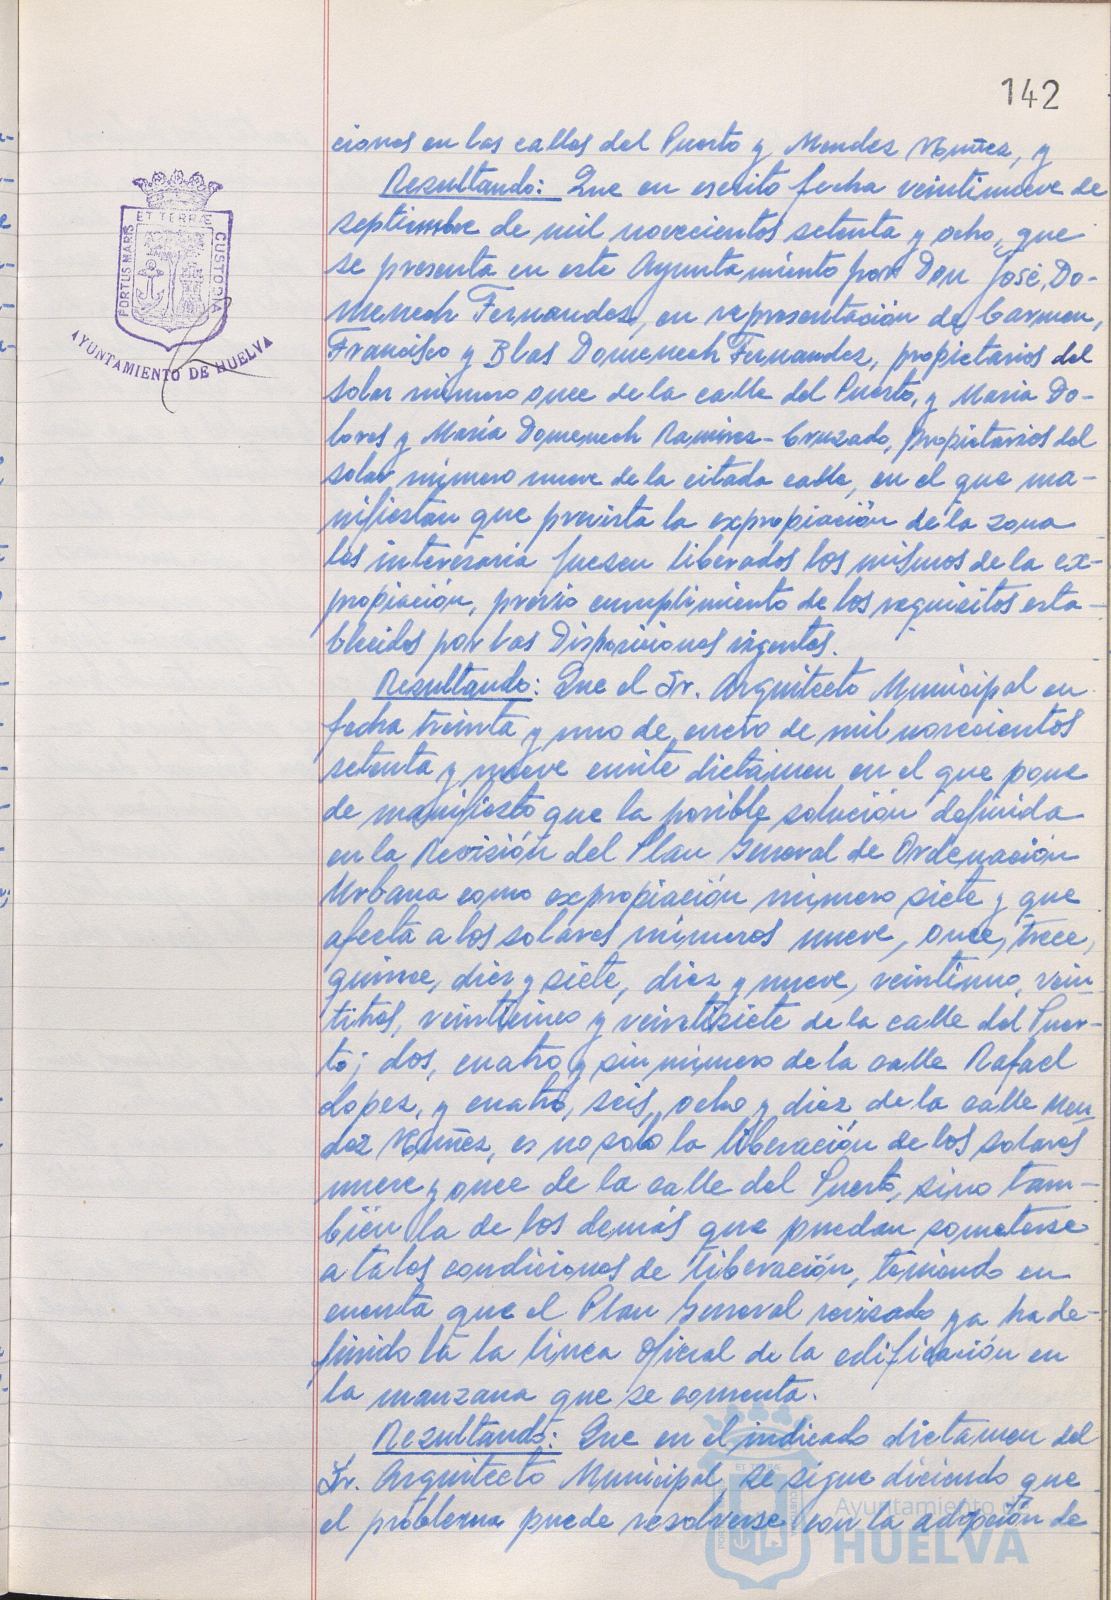 142
ciones en las calles del Puerto y Mendez Nuñez, y
Resultando: Que en escrito fecha veintinueve de
septiembre de mil novecientos setenta y ocho, que
se presenta en este Ayuntamiento por Don José Do-
menech Fernandez, en representación de Carmen,
Francisco y Blas Domenech Fernandez, propietarios del
solar número once de la calle del Puerto, y Maria Do-
lores y María Domenech Ramirez-Cruzado, propietarios del
solar número nueve de la citada calle, en el que ma-
nifiestan que prevista la expropiación de la zona
les interesaria fuesen liberados los mismos de la ex-
propiación, previo cumplimiento de los requisitos esta-
blecidos por las Disposiciones vigentes.
Resultando: Que el Sr. Arquitecto Municipal en
fecha treinta y uno de enero de mil novecientos
setenta y nueve emite dictamen en el que pone
de manifiesto que la posible solución definida
en la Revisión del Plan General de Ordenación
Urbana como expropiación número siete y que
afecta a los solares números nueve, once, trece,
quince, diez y siete, diez y nueve, veintiuno, vein
titres, veinticinco y veintisiete de la calle del Puer-
to; dos, cuatro y sin número de la calle Rafael
Lopez, y cuatro, seis, ocho y diez de la calle Men
dez Nuñez, es no solo la liberación de los solares
nueve y once de la calle del Puerto, sino tam-
bién la de los demás que puedan someterse
a tales condiciones de liberación, teniendo en
cuenta que el Plan General revisado ya ha de-
finido la la linea oficial de la edificación en
la manzana que se comenta.
Resultando: Que en el indicado dictamen del
Sr. Arquitecto Municipal se sigue diciendo que
el problema puede resolverse con la adopción de
PORTUS MARIS ET TERRÆ CUSTODIA
AYUNTAMIENTO DE HUELVA
Ayuntamiento de
HUELVA